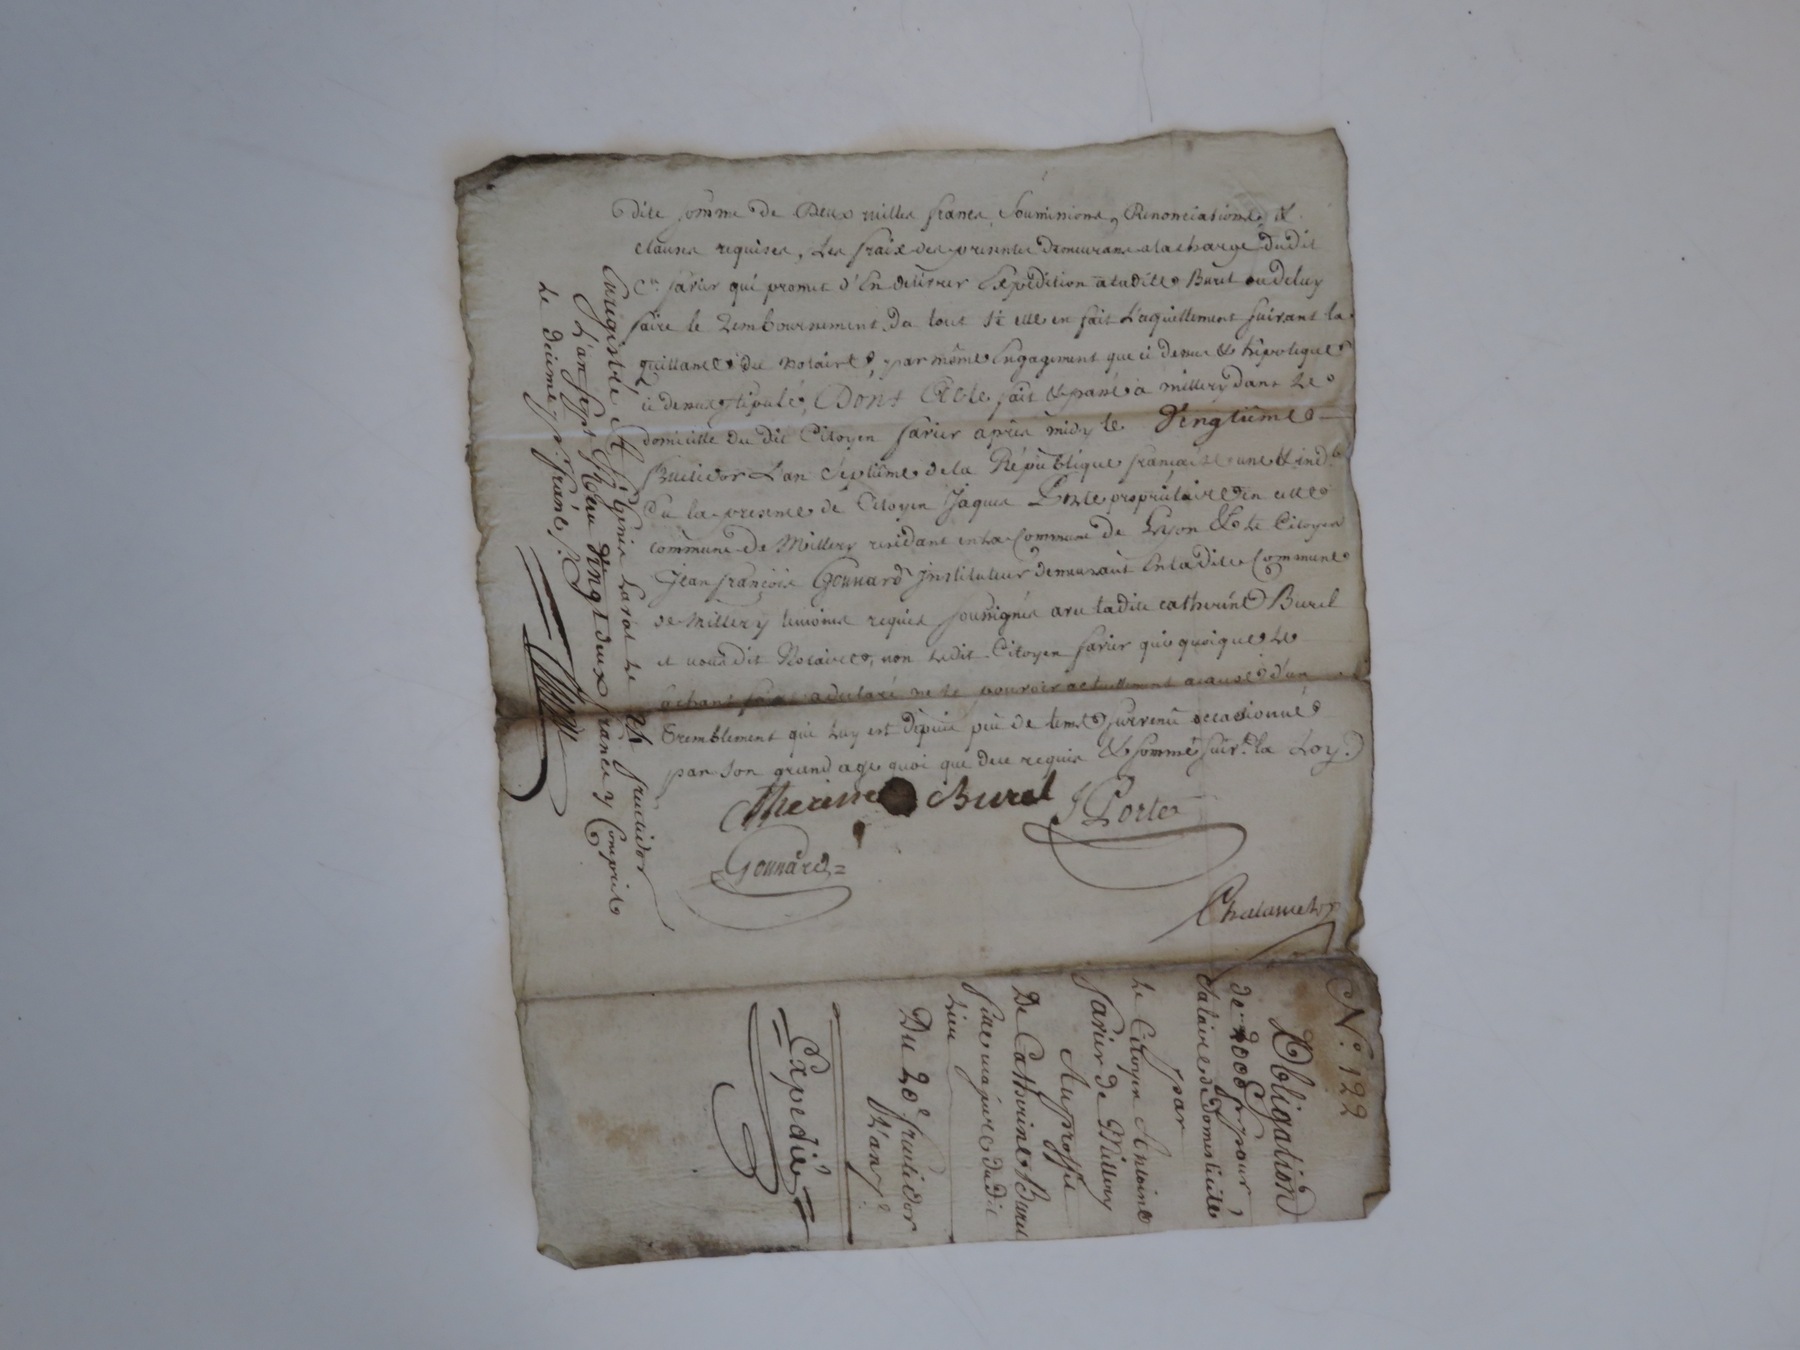 dite somme de Deux milles francs, soumissions, Renonciations, &
clauses requises, Les fraix des presentes demeurans a la charge du dit
Cen favier qui promet d'En delivrer Expedition a ladite Burel ou de luy
faire le Remboursement du tout si elle en fait L'aquittement suivant la
quittance du notaire, par même Engagement que ci dessus & hipoteque
ci dessus stipulé, Dont Acte fait & passé à millery dans Le
domicille du dit Citoyen favier après midy le Vingtième
fructidor L'an Septième de la République française une & indle
En la presence de Citoyen Jaques Porte propriétaire en cette
commune de Millery residant en La Commune de Lyon & Le Citoyen
Jean françois Gonnard Instituteur demeurant En ladite Commune
de Millery temoins requis soussignés avec ladite catherine Burel
et nous dit Notaire, non Ledit Citoyen favier qui quoique Le
sachant faire a declaré ne le pouvoir actuellement a cause d'un
Tremblement qui Luy est depuis peu de tems survenu occasionné
par son grand age quoi que de ce requis & sommé suivt la Loy.
Catherine Burel
J Porte
Gonnard
Chalamel
Enregistré A St Genis Laval Le 24 fructidor
L'an Sept Reçu Vingt deux francs y Compris
Le decime pr franc
N.° 122
Obligation
de 2000 fr pour
Salaire de Domesticité
par
Le Citoyen Antoine
favier de Millery
Au proffit
De Catherine Burel
fille majeure du dit
Lieu
Du 20e fructidor
L'an 7e
Expedié